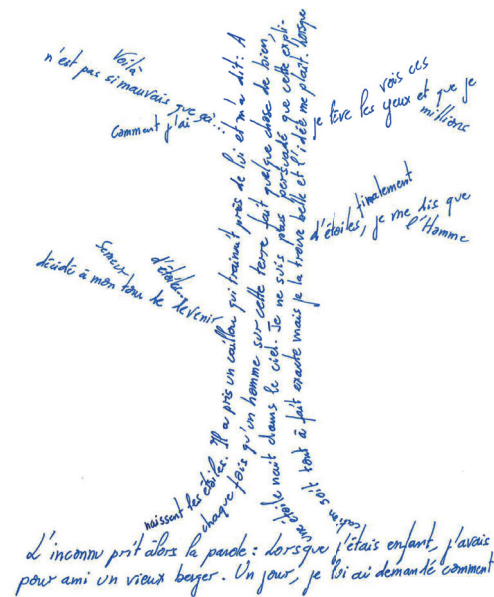 L'inconnu prit alors la parole : Lorsque j'étais enfant, j'avais
pour ami un vieux berger. Un jour, je lui ai demandé comment
naissent les étoiles. Il a pris un caillou qui trainait près de lui et m'a dit : A
chaque fois qu'un homme sur cette terre fait quelque chose de bien,
une étoile nait dans le ciel. Je ne suis persuadé que cette expli-
cation soit tout à fait exacte mais je la trouve belle et l'idée me plaît. Lorsque
je lève les yeux et que je
vois ces
millions
d'étoiles, je me dis que
finalement
l'Homme
n'est pas si mauvais que ça...
Voilà
comment j'ai
décidé à mon tour de devenir
Semeur
d'étoiles...